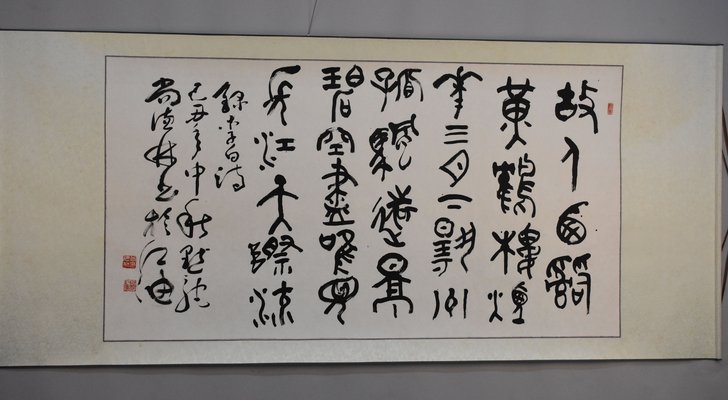 故人西辭
黃鶴樓煙
華三月下揚州
孤帆遠景
碧空盡唯見
長江天際流
錄李白詩
己丑年中秋
尚德林書於江油